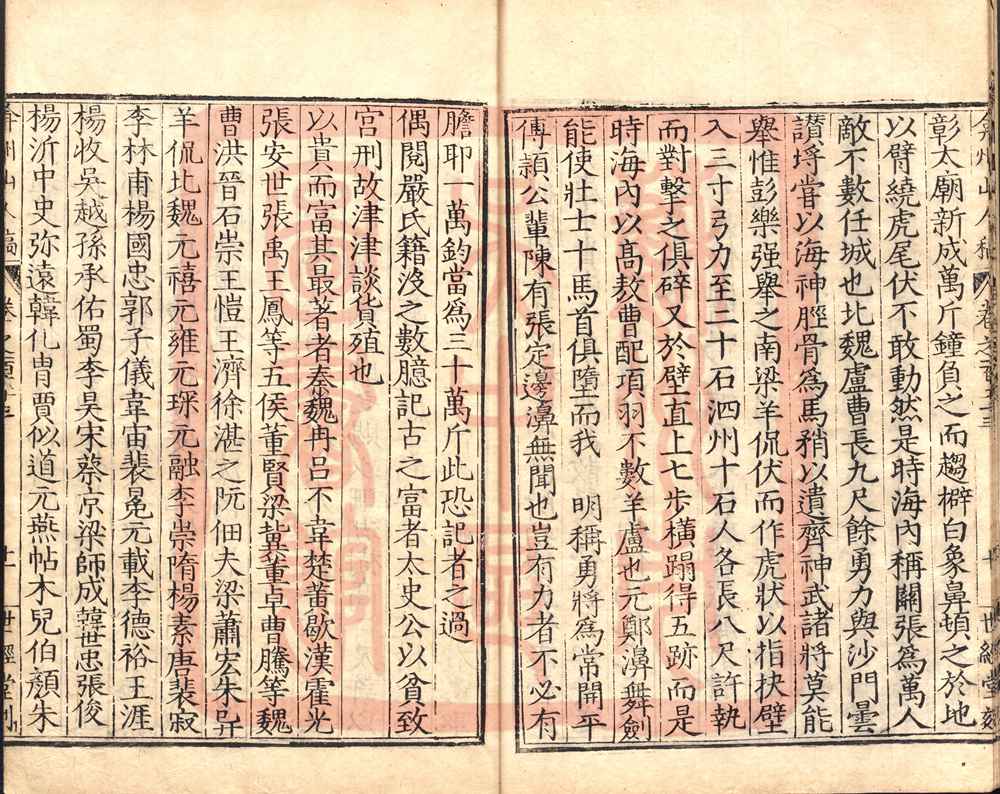 弇州山人稿 卷之百六十三 十 世經堂刻
彰太廟新成萬斤鐘負之而趨擗白象鼻頓之於地
以臂繞虎尾伏不敢動然是時海內稱關張為萬人
敵不數任城也北魏盧曹長九尺餘勇力與沙門曇
讚埒嘗以海神脛骨為馬矟以遺齊神武諸將莫能
舉惟彭樂强舉之南梁羊侃伏而作虎狀以指抉壁
入三寸弓力至二十石泗州十石人各長八尺許執
而對擊之俱碎又於壁直上七步橫蹋得五跡而是
時海內以高敖曹配項羽不數羊盧也元鄭濞舞劍
能使壯士十馬首俱墮而我　明稱勇將為常開平
傅穎公輩陳有張定邊濞無聞也豈有力者不必有
膽耶一萬鈞當為三十萬斤此恐記者之過
偶閱嚴氏籍沒之數臆記古之富者太史公以貧致
宮刑故津津談貨殖也
以貴而富其最著者秦魏冉呂不韋楚黃歇漢霍光
張安世張禹王鳳等五侯董賢梁冀董卓曹騰等魏
曹洪晉石崇王愷王濟徐湛之阮佃夫梁蕭宏朱异
羊侃比魏元禧元雍元琛元融李崇隋楊素唐裴寂
李林甫楊國忠郭子儀韋宙裴冕元載李德裕王涯
楊收吳越孫承佑蜀李昊宋蔡京梁師成韓世忠張俊
楊沂中史弥遠韓侂胄賈似道元燕帖木兒伯顏朱
弇州山人稿 卷之百六十三 十一 世經堂刻